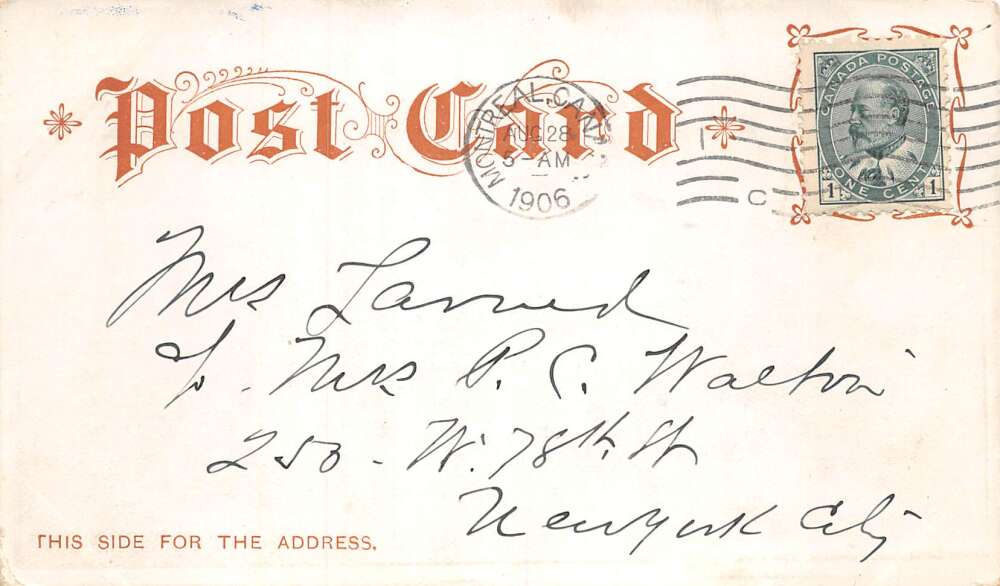 Post Card
MONTREAL, CANADA
AUG 28
5-AM
1906
C
CANADA POSTAGE
1 ONE CENT 1
Mrs Larned
c/o. Mrs P. C. Walton
250 - W. 78th St
New York City
THIS SIDE FOR THE ADDRESS.